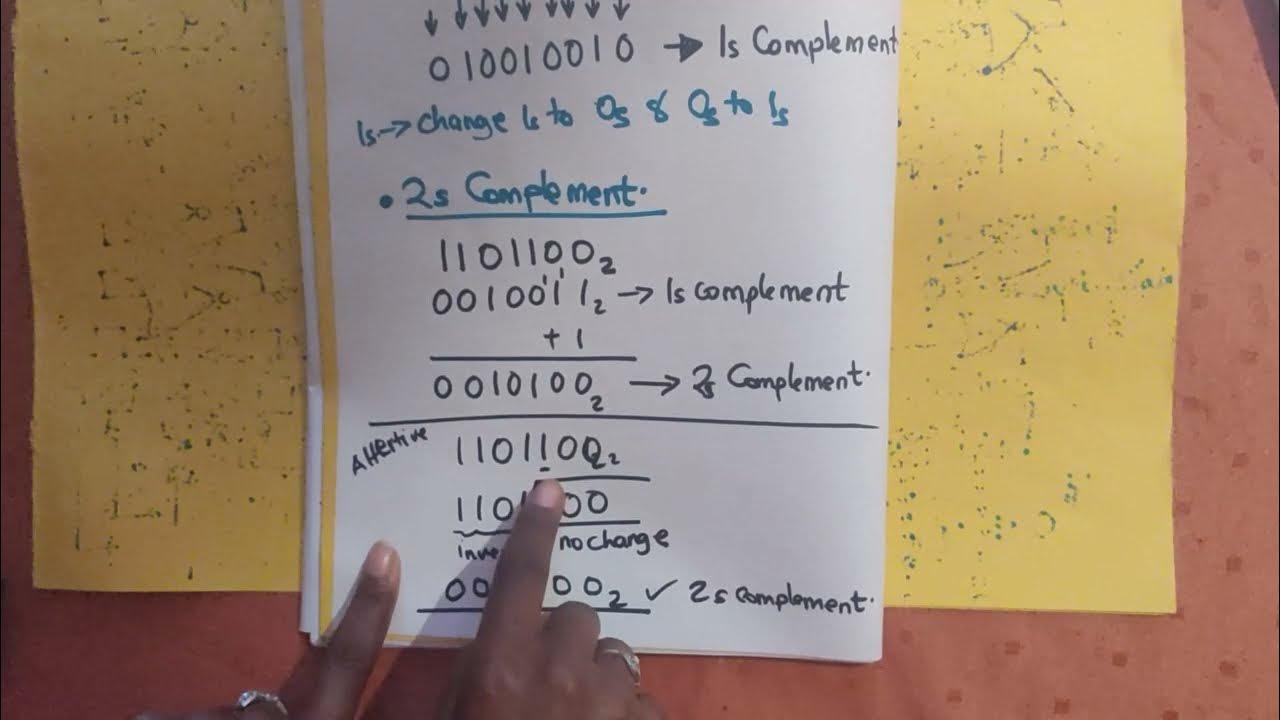 010010010 → 1s Complement
1s → change 1s to 0s & 0s to 1s
• 2s Complement.
1101100₂
11
0010011₂ → 1s complement
+ 1
0010100₂ → 2s Complement.
Alltertive
1101100₂
110 00
nochange
00 00₂ ✓ 2s complement.